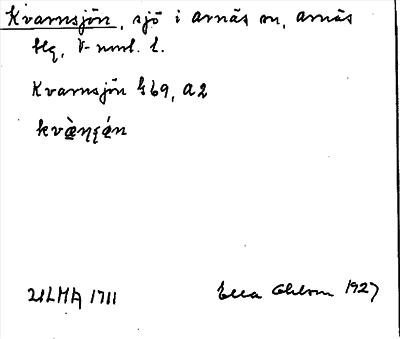 Kvarnsjön, sjö i Arnäs sn, Arnäs
tlg, V-norrl. l.
Kvarnsjön G69, A2
ULMA 1711 Ella Ohlson 1927